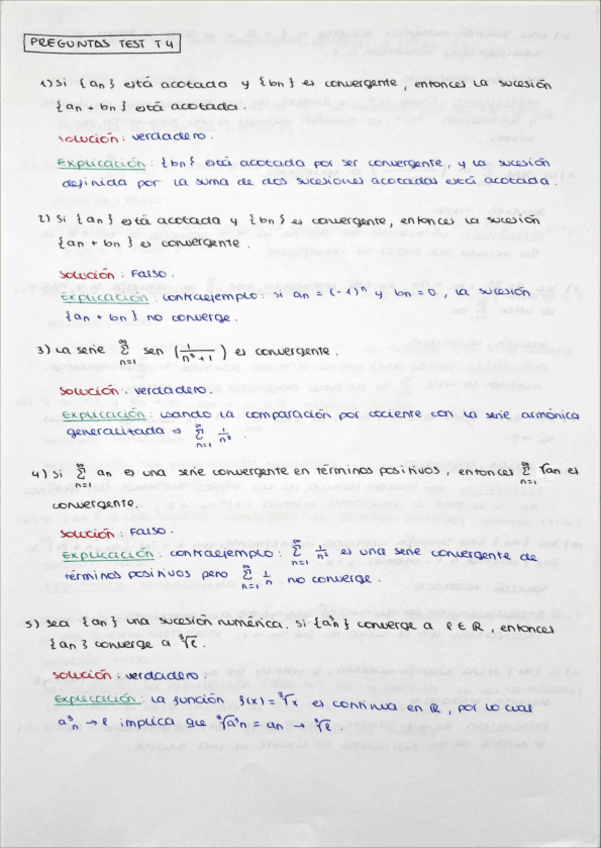 PREGUNTAS TEST T4
1) Si {an} está acotada y {bn} es convergente, entonces la sucesión
{an + bn} está acotada.
Solución: verdadero.
Explicación: {bn} está acotada por ser convergente, y la sucesión
definida por la suma de dos sucesiones acotadas está acotada.
2) Si {an} está acotada y {bn} es convergente, entonces la sucesión
{an + bn} es convergente.
Solución: Falso.
Explicación: Contraejemplo: si an = (-1)^n y bn = 0, la sucesión
{an + bn} no converge.
3) La serie ∞ Σ n=1 sen (1/(n³+1)) es convergente.
Solución: verdadero.
Explicación: usando la comparación por cociente con la serie armónica
generalizada → ∞ Σ n=1 1/n³.
4) Si ∞ Σ n=1 an es una serie convergente en términos positivos, entonces ∞ Σ n=1 √an es
convergente.
Solución: Falso.
Explicación: contraejemplo: ∞ Σ n=1 1/n² es una serie convergente de
términos positivos pero ∞ Σ n=1 1/n no converge.
5) Sea {an} una sucesión numérica. Si {a³n} converge a ℓ ∈ ℝ, entonces
{an} converge a ³√ℓ.
Solución: verdadero.
Explicación: La función f(x) = ³√x es continua en ℝ, por lo cual
a³n → ℓ implica que ³√a³n = an → ³√ℓ.